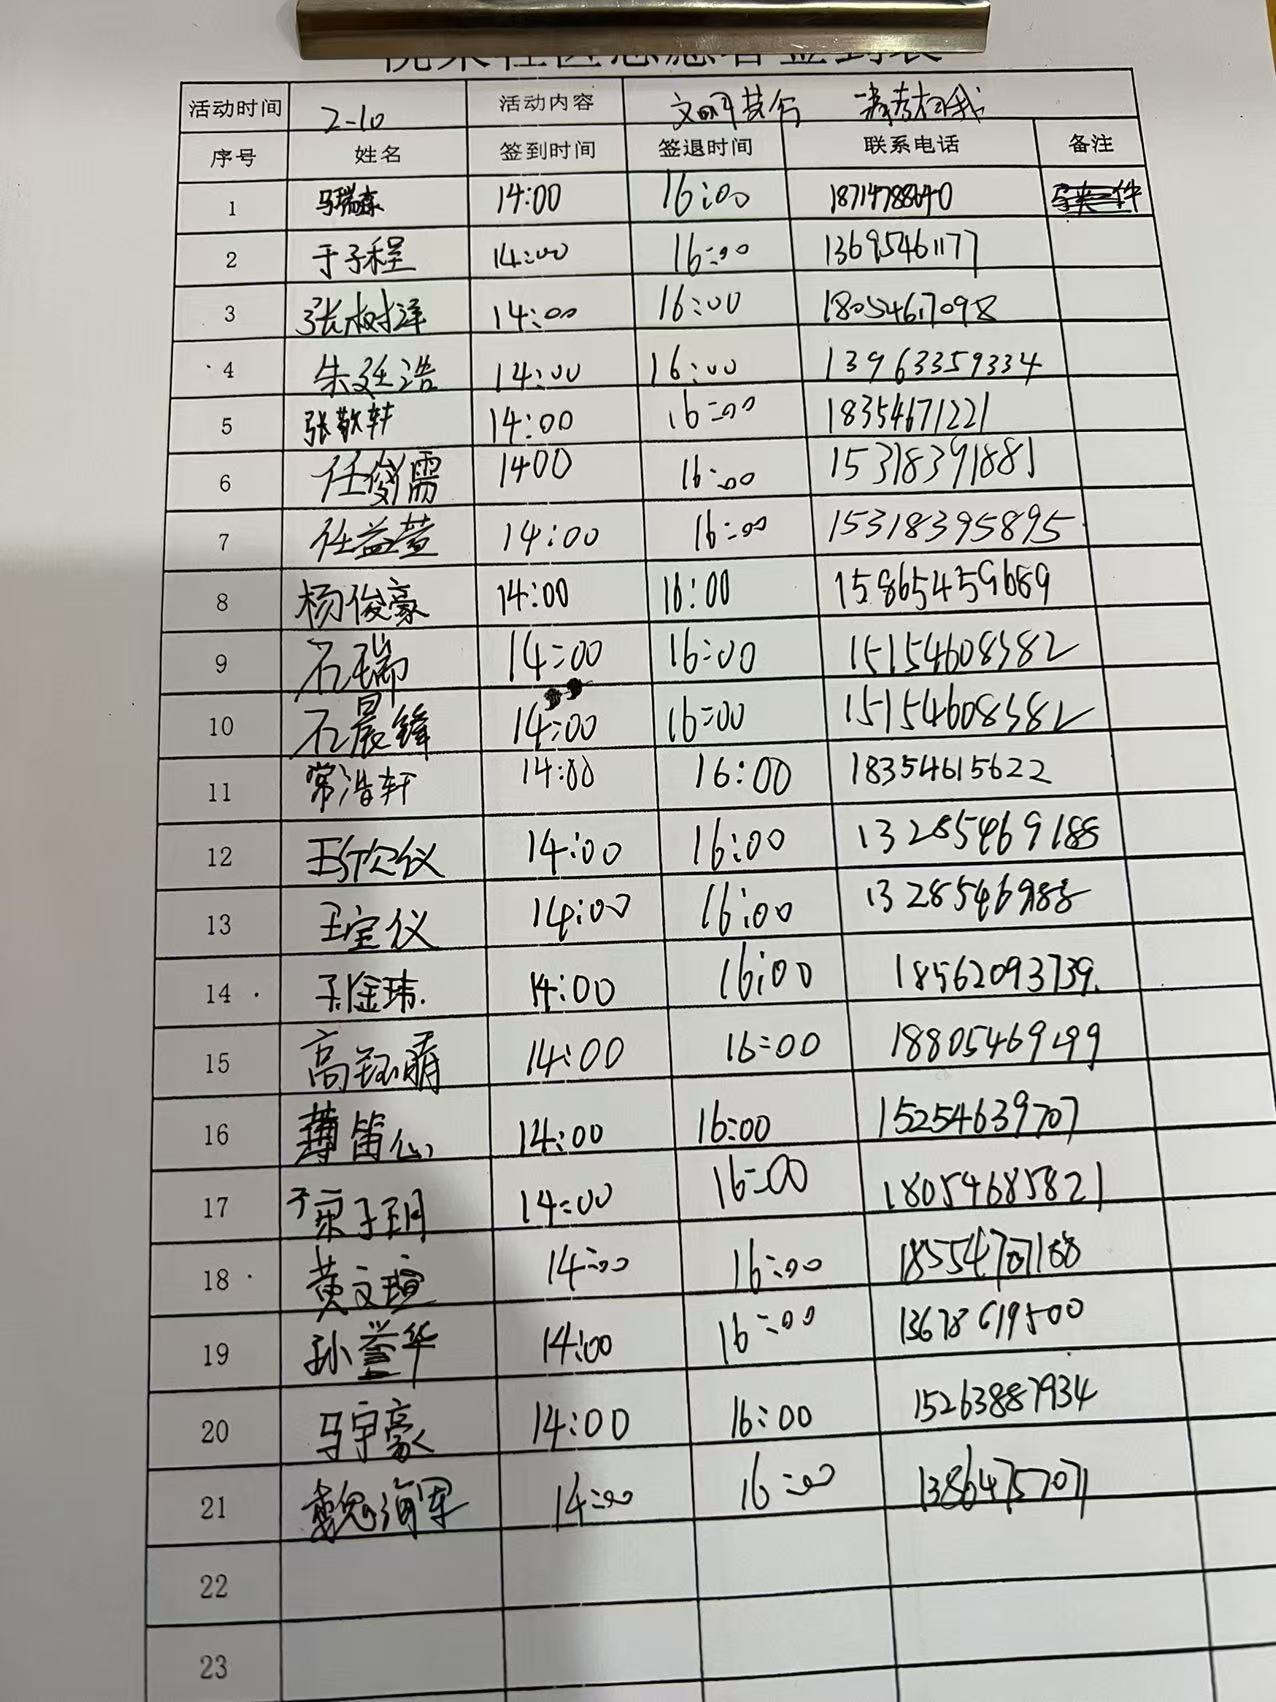 活动时间 2-10 活动内容 文明
序号 姓名 签到时间 签退时间 联系电话 备注
1 马瑞森 14:00 16:00
2 于子程 14:00 16:00 13695461177
3 张树洋 14:00 16:00 18054617098
4 朱廷浩 14:00 16:00 13963359334
5 张敬轩 14:00 16:00 18354671221
6 任俊儒 1400 16:00 15318391881
7 任益萱 14:00 16:00 15318395895
8 杨俊豪 14:00 16:00 15865459689
9 石瑞 14:00 16:00 15154608382
10 石晨锋 14:00 16:00 15154608382
11 常浩轩 14:00 16:00 18354615622
12 王欣仪 14:00 16:00 13285469188
13 王宝仪 14:00 16:00
14 14:00 16:00 18562093739
15 高钰晴 14:00 16:00 18805469199
16 薄笛心 14:00 16:00 15254639707
17 14:00 16:00 18054685821
18 黄文瑄 14:00 16:00
19 孙誉华 14:00 16:00 13678619500
20 马宇豪 14:00 16:00 15263887934
21 魏海军 14:00 16:00 13864757071
22
23